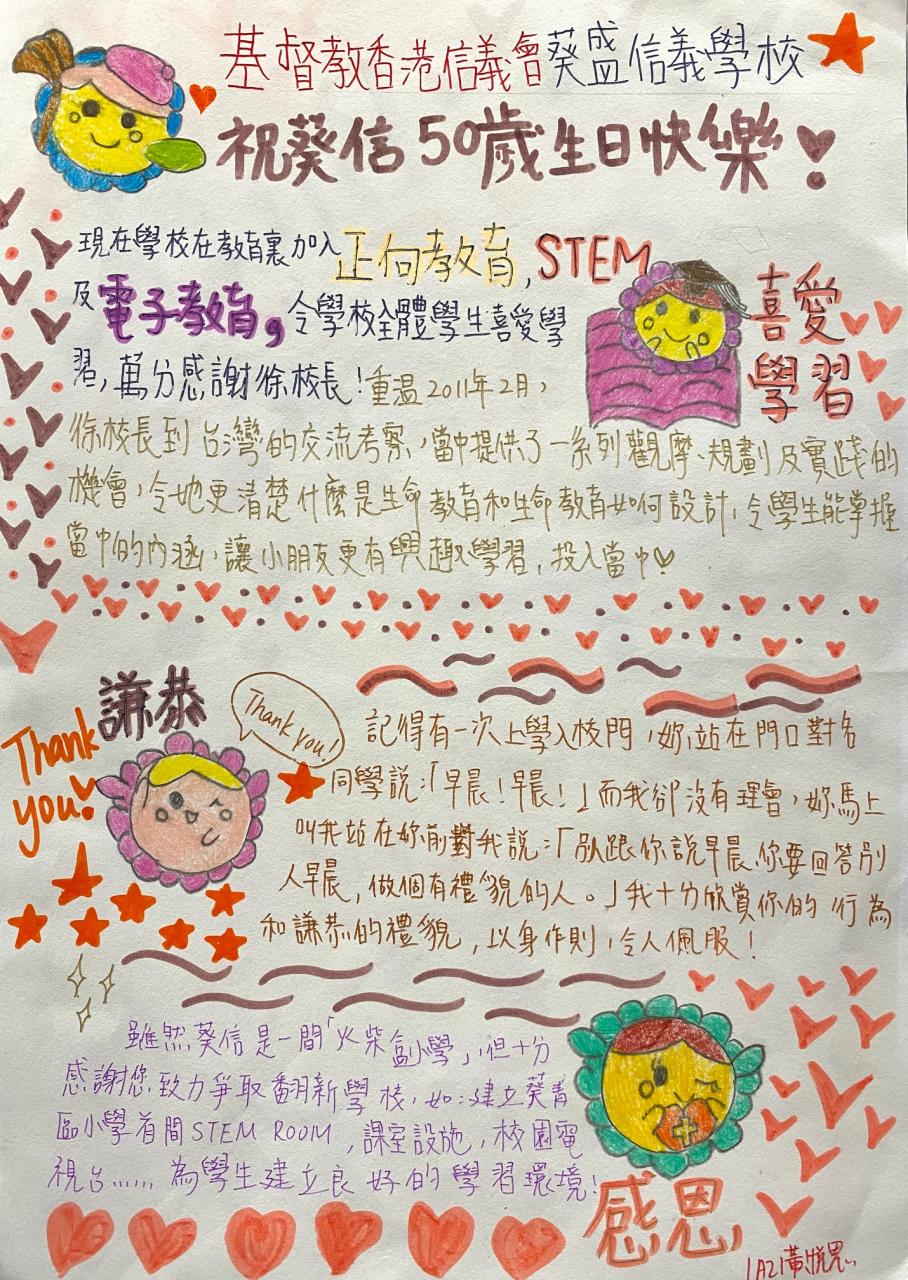 基督教香港信義會葵盛信義學校
祝葵信50歲生日快樂!
現在學校在教育裏加入正向教育,STEM
及電子教育,令學校全體學生喜愛學
習,萬分感謝徐校長!重溫2011年2月,
徐校長到台灣的交流考察,當中提供了一系列觀摩、規劃及實踐的
機會,令她更清楚什麼是生命教育和生命教育如何設計,令學生能掌握
當中的內涵,讓小朋友更有興趣學習,投入當中
喜愛
學習
謙恭
Thank
you!
Thank you!
記得有一次上學入校門,妳站在門口對各
同學説:「早晨!早晨!」而我卻沒有理會,妳馬上
叫我站在妳前對我説:「別跟你説早晨,你要回答別
人早晨,做個有禮貌的人。」我十分欣賞你的行為
和謙恭的禮貌,以身作則,令人佩服!
雖然葵信是一間「火柴盒小學」,但十分
感謝您致力爭取翻新學校,如:建立葵青
區小學首間STEM ROOM,課室設施,校園電
視台……為學生建立良好的學習環境!
感恩
1A21黃悦恩